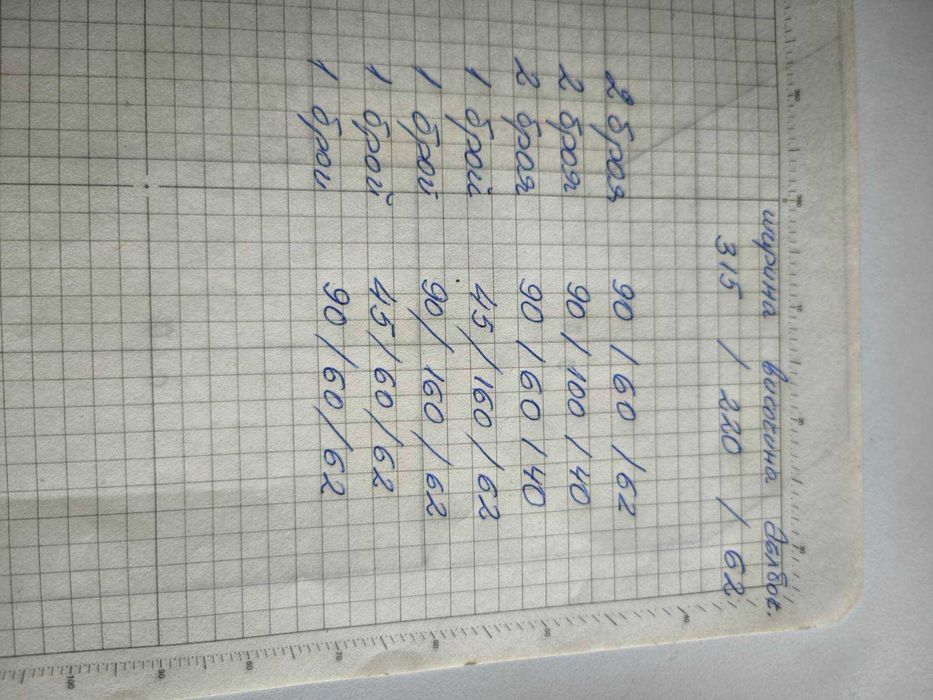 ширина височина дълбоч.
315 / 220 / 62
2 броя 90 / 60 / 62
2 броя 90 / 100 / 40
2 броя 90 / 60 / 40
1 брой 45 / 160 / 62
1 брой 90 / 160 / 62
1 брой 45 / 60 / 62
1 брои 90 / 60 / 62
40
50
60
70
80
90
100